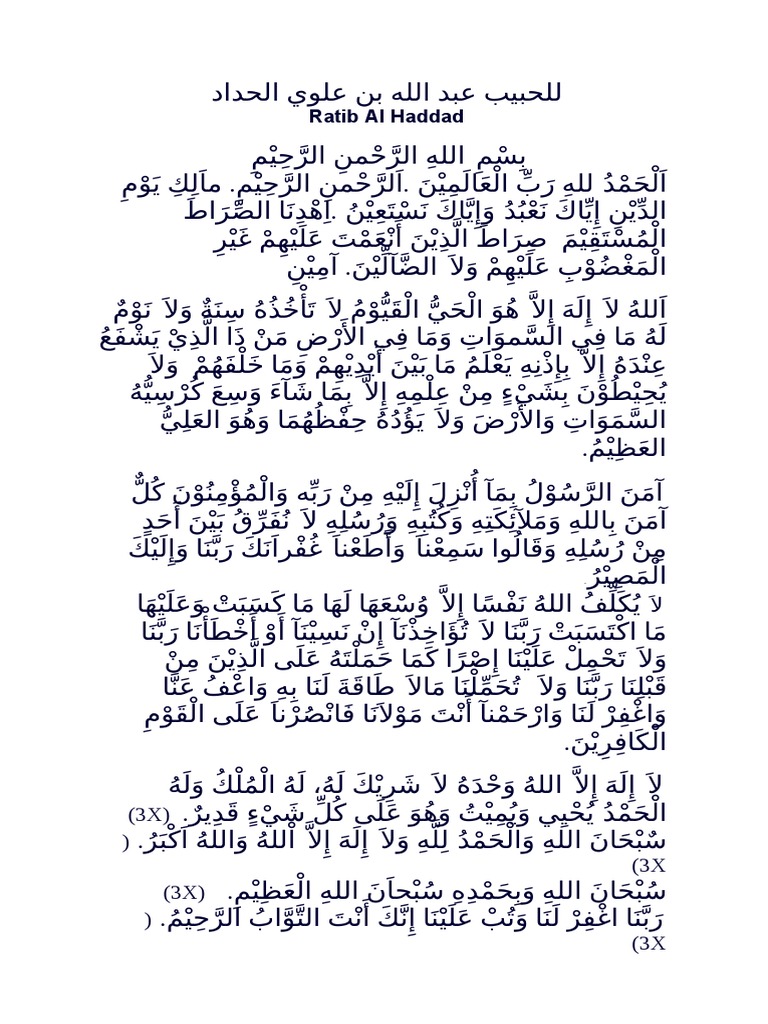 للحبيب عبد الله بن علوي الحداد
Ratib Al Haddad
بِسْمِ اللهِ الرَّحْمنِ الرَّحِيْمِ
اَلْحَمْدُ للهِ رَبِّ الْعَالَمِيْنَ .اَلرَّحْمنِ الرَّحِيْمِ. ماَلِكِ يَوْمِ
الدِّيْنِ إِيِّاكَ نَعْبُدُ وَإِيَّاكَ نَسْتَعِيْنُ .اِهْدِنَا الصِّرَاطَ
الْمُسْتَقِيْمَ صِرَاطَ الَّذِيْنَ أَنْعَمْتَ عَلَيْهِمْ غَيْرِ
الْمَغْضُوْبِ عَلَيْهِمْ وَلاَ الضَّآلِّيْنَ. آمِيْنِ
اَللهُ لاَ إِلَهَ إِلاَّ هُوَ الْحَيُّ الْقَيُّوْمُ لاَ تَأْخُذُهُ سِنَةٌ وَلاَ نَوْمٌ
لَهُ مَا فِي السَّموَاتِ وَمَا فِي الأَرْضِ مَنْ ذَا الَّذِيْ يَشْفَعُ
عِنْدَهُ إِلاَّ بِإِذْنِهِ يَعْلَمُ مَا بَيْنَ أَيْدِيْهِمْ وَمَا خَلْفَهُمْ وَلاَ
يُحِيْطُوْنَ بِشَيْءٍ مِنْ عِلْمِهِ إِلاَّ بِمَا شَآءَ وَسِعَ كُرْسِيُّهُ
السَّمَوَاتِ وَالأَرْضَ وَلاَ يَؤُدُهُ حِفْظُهُمَا وَهُوَ العَلِيُّ
العَظِيْمُ.
آمَنَ الرَّسُوْلُ بِمَآ أُنْزِلَ إِلَيْهِ مِنْ رَبِّه وَالْمُؤْمِنُوْنَ كُلٌّ
آمَنَ بِاللهِ وَمَلآئِكَتِهِ وَكُتُبِهِ وَرُسُلِهِ لاَ نُفَرِّقُ بَيْنَ أَحَدٍ
مِنْ رُسُلِهِ وَقَالُوا سَمِعْناَ وَأَطَعْناَ غُفْراَنَكَ رَبَّنَا وَإِلَيْكَ
الْمَصِيْرُ
لاَ يُكَلِّفُ اللهُ نَفْسًا إِلاَّ وُسْعَهَا لَهَا مَا كَسَبَتْ وَعَلَيْهَا
مَا اكْتَسَبَتْ رَبَّنَا لاَ تُؤَاخِذْنَآ إِنْ نَسِيْنَآ أَوْ أَخْطَأْنَا رَبَّنَا
وَلاَ تَحْمِلْ عَلَيْنَا إِصْرًا كَمَا حَمَلْتَهُ عَلَى الَّذِيْنَ مِنْ
قَبْلِنَا رَبَّنَا وَلاَ تُحَمِّلْنَا مَالاَ طَاقَةَ لَنَا بِهِ وَاعْفُ عَنَّا
وَاغْفِرْ لَنَا وَارْحَمْنآَ أَنْتَ مَوْلاَنَا فَانْصُرْناَ عَلَى الْقَوْمِ
الْكَافِرِيْنَ.
لاَ إِلَهَ إِلاَّ اللهُ وَحْدَهُ لاَ شَرِيْكَ لَهُ، لَهُ الْمُلْكُ وَلَهُ
الْحَمْدُ يُحْيِي وَيُمِيْتُ وَهُوَ عَلَى كُلِّ شَيْءٍ قَدِيرٌ. (3X)
سٌبْحَانَ اللهِ وَالْحَمْدُ لِلَّهِ وَلاَ إِلَهَ إِلاَّ اْللهُ وَاللهُ اَكْبَرُ. (
3X)
سُبْحَانَ اللهِ وَبِحَمْدِهِ سُبْحاَنَ اللهِ الْعَظِيْمِ. (3X)
رَبَّنَا اغْفِرْ لَنَا وَتُبْ عَلَيْنَا إِنَّكَ أَنْتَ التَّوَّابُ الرَّحِيْمُ. (
3X)